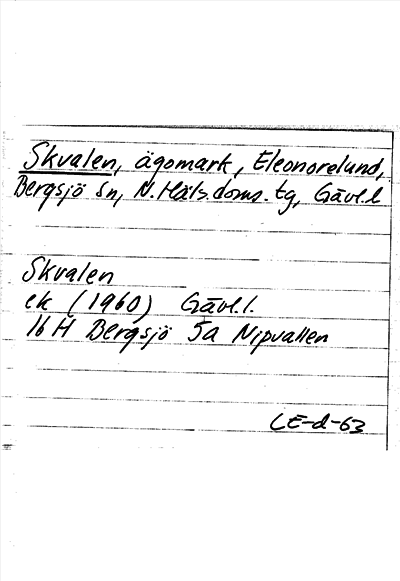 Skvalen, ägomark, Eleonorelund,
Bergsjö sn, N. Häls. doms. tg, Gävl. l
Skvalen
ek (1960) Gävl. l.
16 H Bergsjö 5a Nipvallen
LE-d-63